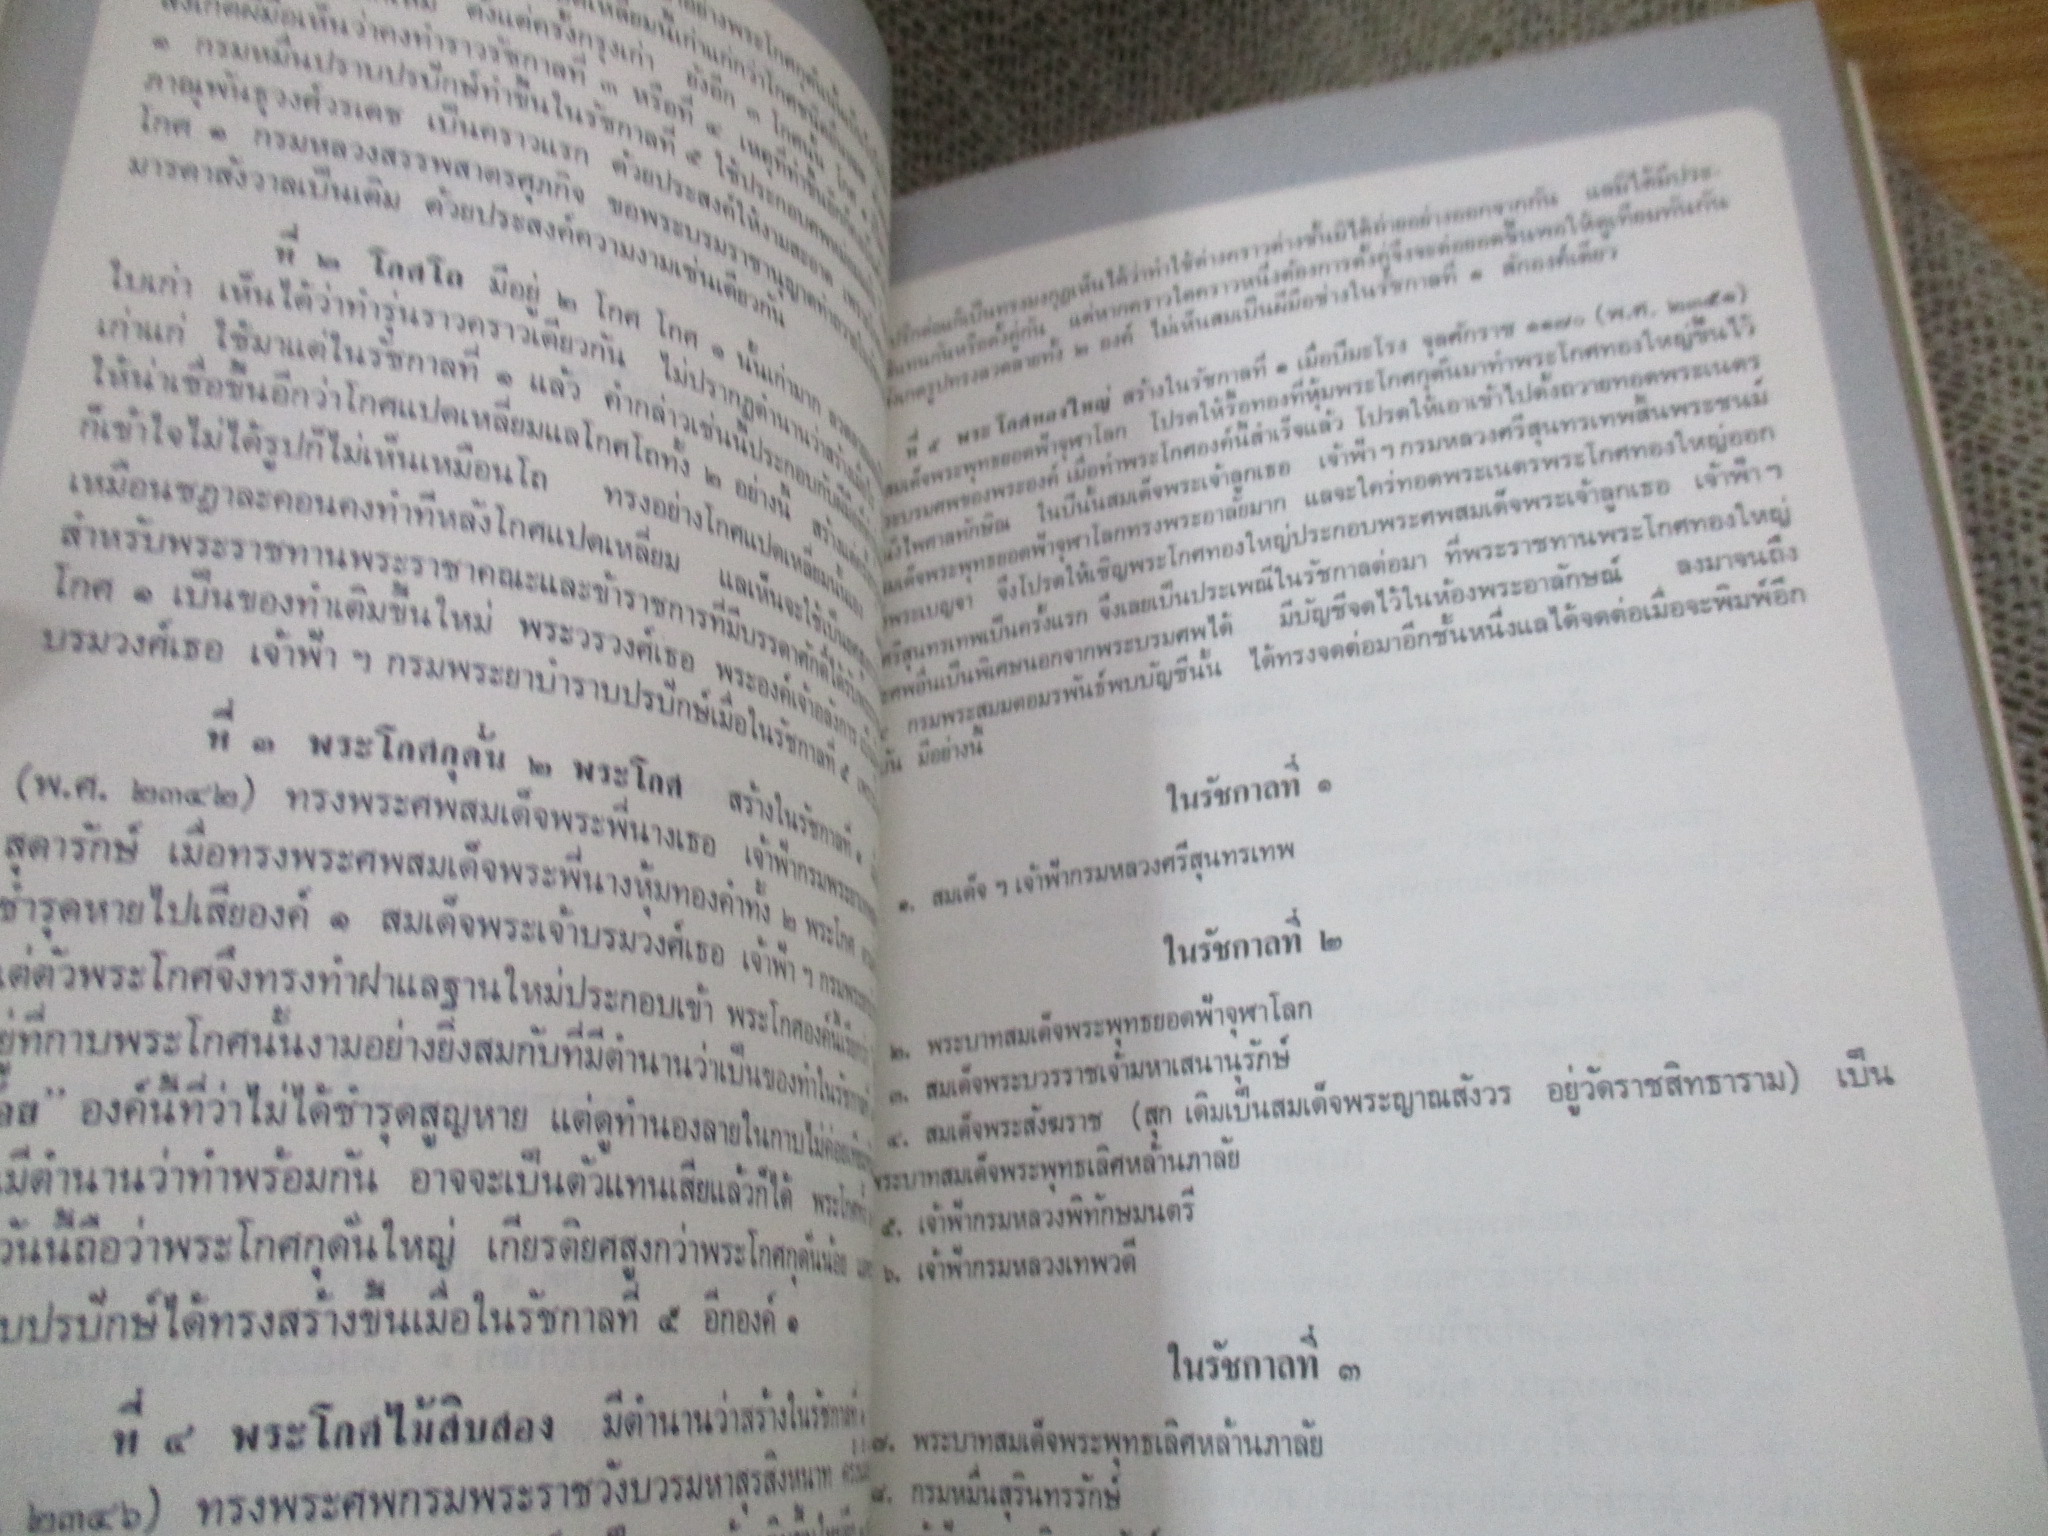 สังเกตฝีมือเห็นว่าคงทำราวรัชกาลที่ ๓ หรือที่ ๔ เหตุที่ทำขึ้นอีก
๑ กรมหมื่นปราบปรปักษ์ทำขึ้นในรัชกาลที่ ๕ ใช้ประกอบศพ
ภาณุพันธุวงศ์วรเดช เป็นคราวแรก ด้วยประสงค์ให้งามสะอาด
โกศ ๑ กรมหลวงสรรพสาตรศุภกิจ ขอพระบรมราชานุญาต
มารดาสังวาลเป็นเดิม ด้วยประสงค์ความงามเช่นเดียวกัน
ที่ ๒ โกศโถ มีอยู่ ๒ โกศ โกศ ๑ นั้นเก่ามาก
ใบเก่า เห็นได้ว่าทำรุ่นราวคราวเดียวกัน ไม่ปรากฏตำนานว่าสร้าง
เก่าแก่ ใช้มาแต่ในรัชกาลที่ ๑ แล้ว คำกล่าวเช่นนี้ประกอบกับ
ให้น่าเชื่อขึ้นอีกว่าโกศแปดเหลี่ยมแลโกศโถทั้ง ๒ อย่างนี้
ก็เข้าใจไม่ได้รูปก็ไม่เห็นเหมือนโถ ทรงอย่างโกศแปดเหลี่ยม
เหมือนชฎาละคอนคงทำทีหลังโกศแปดเหลี่ยม แลเห็นจะใช้เป็น
สำหรับพระราชทานพระราชาคณะและข้าราชการที่มีบรรดาศักดิ์ได้รับ
โกศ ๑ เป็นของทำเติมขึ้นใหม่ พระวรวงศ์เธอ พระองค์เจ้าอลังการ
บรมวงศ์เธอ เจ้าฟ้า ฯ กรมพระยาบำราบปรปักษ์เมื่อในรัชกาลที่ ๕
ที่ ๓ พระโกศกุดั่น ๒ พระโกศ สร้างในรัชกาลที่ ๑
(พ.ศ. ๒๓๔๒) ทรงพระศพสมเด็จพระพี่นางเธอ เจ้าฟ้ากรมพระยา
สุดารักษ์ เมื่อทรงพระศพสมเด็จพระพี่นางหุ้มทองคำทั้ง ๒ พระโกศ
ชำรุดหายไปเสียองค์ ๑ สมเด็จพระเจ้าบรมวงศ์เธอ เจ้าฟ้า ฯ กรมพระยา
แต่ตัวพระโกศจึงทรงทำฝาแลฐานใหม่ประกอบเข้า พระโกศองค์นี้
อยู่ที่กาบพระโกศนั้นงามอย่างยิ่งสมกับที่มีตำนานว่าเป็นของทำในรัชกาลที่
” องค์นี้ที่ว่าไม่ได้ชำรุดสูญหาย แต่ดูทำนองลายในกาบไม่ค่อย
มีตำนานว่าทำพร้อมกัน อาจจะเป็นตัวแทนเสียแล้วก็ได้
วันนี้ถือว่าพระโกศกุดั่นใหญ่ เกียรติยศสูงกว่าพระโกศกุดั่นน้อย
ปรปักษ์ได้ทรงสร้างขึ้นเมื่อในรัชกาลที่ ๕ อีกองค์ ๑
ที่ ๔ พระโกศไม้สิบสอง มีตำนานว่าสร้างในรัชกาลที่ ๑
๒๓๔๖) ทรงพระศพกรมพระราชวังบวรมหาสุรสิงหนาท
เป็นทรงมงกุฎเห็นได้ว่าทำใช้ต่างคราวต่างชั้นมิได้ถ่ายอย่างออกจากกัน แลมิได้มีประ-
แทนกันหรือตั้งคู่กัน แต่หากคราวใดคราวหนึ่งต้องการตั้งคู่จึงจะต่อยอดขึ้นพอให้ดูเทียมทันกัน
รูปทรงลวดลายทั้ง ๒ องค์ ไม่เห็นสมเป็นฝีมือช่างในรัชกาลที่ ๑ สักองค์เดียว
ที่ ๕ พระโกศทองใหญ่ สร้างในรัชกาลที่ ๑ เมื่อปีมะโรง จุลศักราช ๑๑๗๐ (พ.ศ. ๒๓๕๑)
สมเด็จพระพุทธยอดฟ้าจุฬาโลก โปรดให้รื้อทองที่หุ้มพระโกศกุดั่นมาทำพระโกศทองใหญ่ขึ้นไว้
พระบรมศพของพระองค์ เมื่อทำพระโกศองค์นี้สำเร็จแล้ว โปรดให้เอาเข้าไปตั้งถวายทอดพระเนตร
ไพศาลทักษิณ ในปีนั้นสมเด็จพระเจ้าลูกเธอ เจ้าฟ้า ฯ กรมหลวงศรีสุนทรเทพสิ้นพระชนม์
สมเด็จพระพุทธยอดฟ้าจุฬาโลกทรงพระอาลัยมาก แลจะใคร่ทอดพระเนตรพระโกศทองใหญ่ออก
พระเบญจา จึงโปรดให้เชิญพระโกศทองใหญ่ประกอบพระศพสมเด็จพระเจ้าลูกเธอ เจ้าฟ้า ฯ
ศรีสุนทรเทพเป็นครั้งแรก จึงเลยเป็นประเพณีในรัชกาลต่อมา ที่พระราชทานพระโกศทองใหญ่
ศพอื่นเป็นพิเศษนอกจากพระบรมศพได้ มีบัญชีจดไว้ในห้องพระอาลักษณ์ ลงมาจนถึง
กรมพระสมมตอมรพันธ์พบบัญชีนั้น ได้ทรงจดต่อมาอีกชั้นหนึ่งแลได้จดต่อเมื่อจะพิมพ์อีก
มีอย่างนี้
ในรัชกาลที่ ๑
๑. สมเด็จ ฯ เจ้าฟ้ากรมหลวงศรีสุนทรเทพ
ในรัชกาลที่ ๒
๒. พระบาทสมเด็จพระพุทธยอดฟ้าจุฬาโลก
๓. สมเด็จพระบวรราชเจ้ามหาเสนานุรักษ์
๔. สมเด็จพระสังฆราช (สุก เดิมเป็นสมเด็จพระญาณสังวร อยู่วัดราชสิทธาราม) เป็น
พระบาทสมเด็จพระพุทธเลิศหล้านภาลัย
๕. เจ้าฟ้ากรมหลวงพิทักษมนตรี
๖. เจ้าฟ้ากรมหลวงเทพวดี
ในรัชกาลที่ ๓
๗. พระบาทสมเด็จพระพุทธเลิศหล้านภาลัย
๘. กรมหมื่นสุรินทรรักษ์